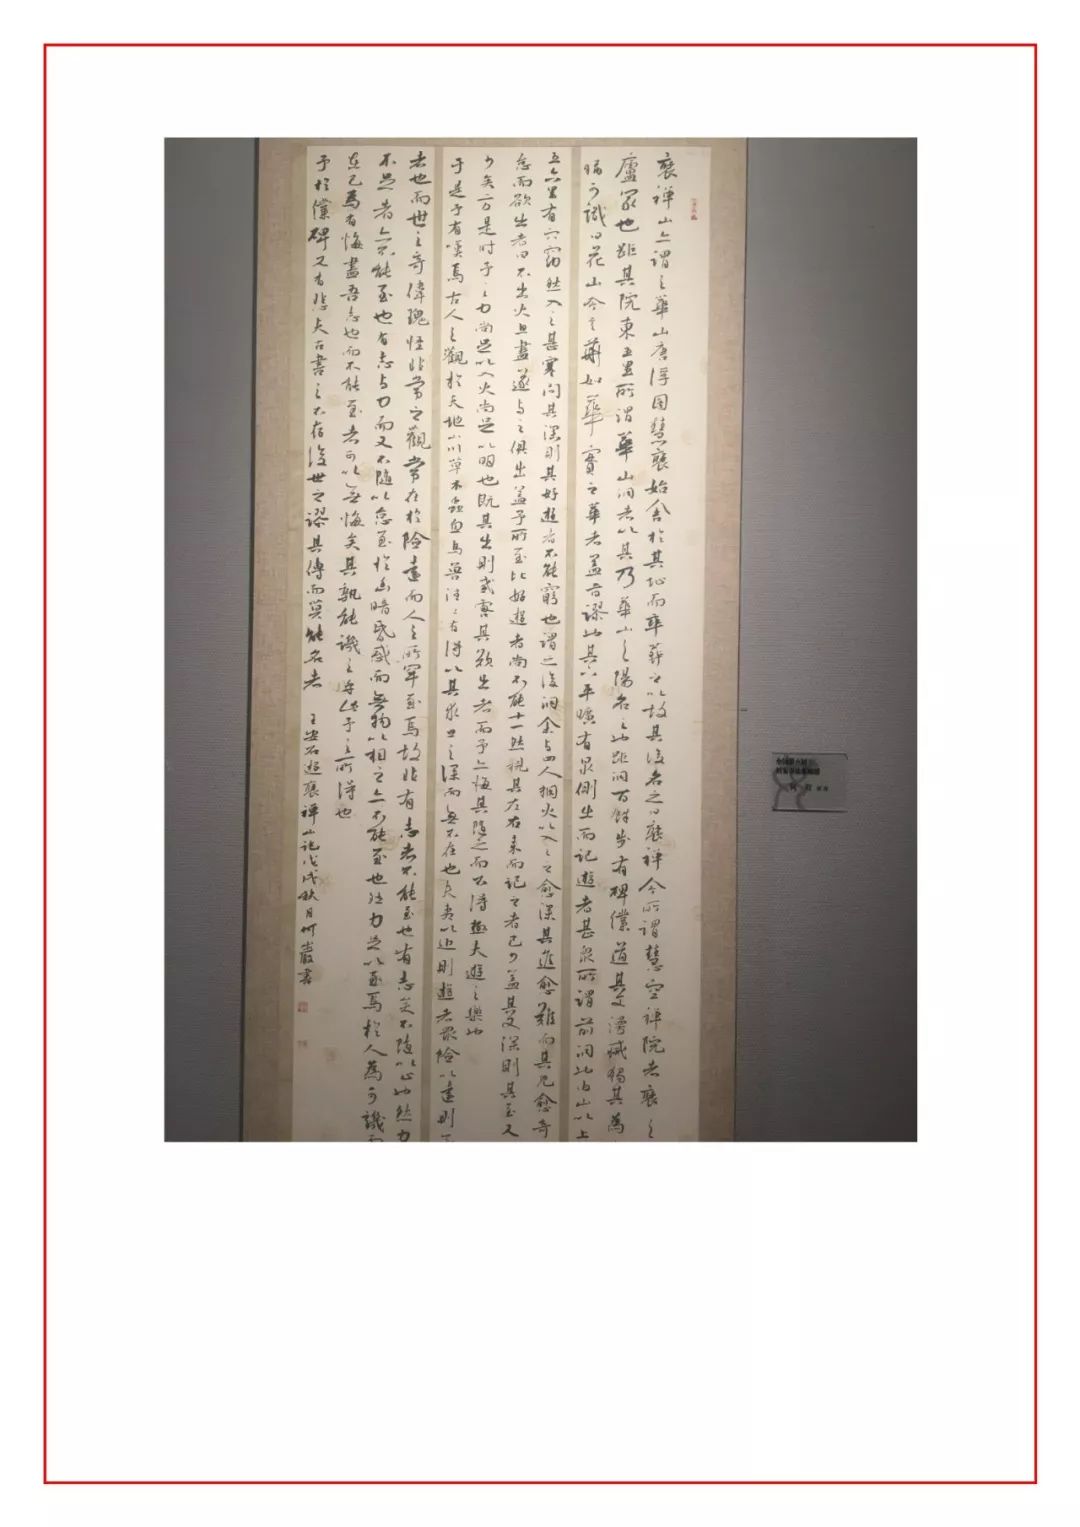 褒禅山亦謂之華山唐浮図慧褒始舍於其址而卒葬之以故其後名之曰褒禅今所謂慧空禅院者褒之
廬冢也距其院東五里所謂華山洞者以其乃華山之陽名之也距洞百餘步有碑僕道其文漫滅獨其為
文猶可識曰花山今言華如華實之華者蓋音謬也其下平曠有泉側出而記遊者甚衆所謂前洞也由山以上
五六里有穴窈然入之甚寒問其深則其好遊者不能窮也謂之後洞余与四人擁火以入入之愈深其進愈難而其見愈奇
怠而欲出者曰不出火且盡遂与之俱出蓋予所至比好遊者尚不能十一然視其左右来而記之者已少蓋其又深則其至又
少矣方是时予之力尚足以入火尚足以明也既其出則或咎其欲出者而予亦悔其隨之而不得極夫遊之樂也
于是予有嘆焉古人之觀於天地山川草木蟲魚鳥獸往往有得以其求思之深而無不在也夫夷以近則遊者衆險以遠則至
者少而世之奇偉瑰怪非常之觀常在於險遠而人之所罕至焉故非有志者不能至也有志矣不隨以止也然力
不足者亦不能至也有志与力而又不隨以怠至於幽暗昏惑而無物以相之亦不能至也然力足以至焉於人為可譏而
在己為有悔盡吾志也而不能至者可以無悔矣其孰能譏之乎此予之所得也
予於僕碑又有悲夫古書之不存後世之謬其傳而莫能名者 王安石遊褒禅山記戊戌秋月何巖書